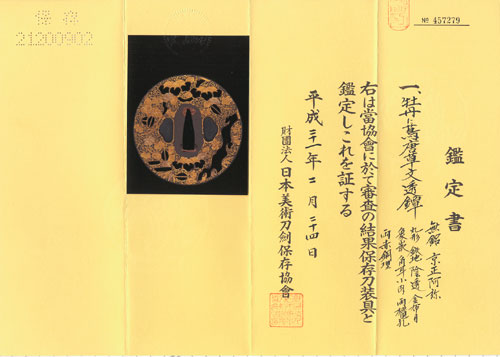 保存
21200902
№ 457279
鑑定書
一、牡丹に唐草文透鐔
無銘 京正阿弥
丸形 鉄地 陰透 金布目
象嵌 角耳小肉 両櫃孔
両赤銅埋
右は當協會に於て審査の結果保存刀装具と
鑑定しこれを証する
平成二十一年二月二十四日
財團法人 日本美術刀劍保存協會